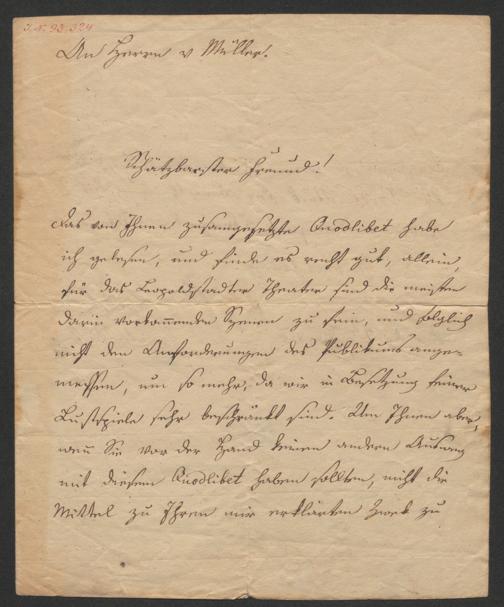 J.N. 93.324
An Herrn v Müller.
Schätzbarster Freund!
Das von Ihnen zusamgesetzte Quodlibet habe
ich gelesen, und finde es recht gut, allein,
für das Leopoldstadter Theater sind die meisten
darin vorkommenden Szenen zu fein, und folglich
nicht den Anforderungen des Publikums ange-
messen, um so mehr, da wir in Besetzung feiner
Lustspiele sehr beschränkt sind. Um Ihnen aber,
wenn Sie vor der Hand keinen andern Ausweg
mit diesem Quodlibet haben sollten, nicht die
Mittel zu Ihrem mir erklärten Zwek zu